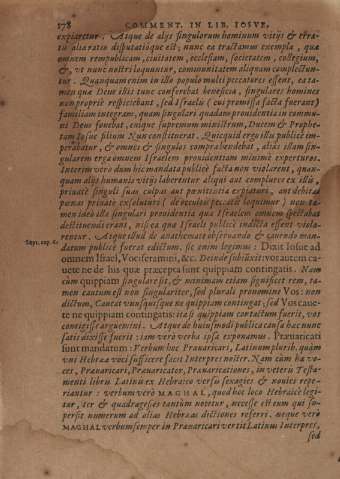 378 COMMENT. IN LIB. IOSVE,
expiaretur. Atque de alijs singulorum hominum vitijs & erra-
tis alia ratio disputatioque est; nunc ea tractamus exempla, quæ
omnem rempublicam, ciuitatem, ecclesiam, societatem, collegium,
&, vt nunc nostri loquuntur, communitatem aliquam complectun-
tur. Quanquam etiam in illo populo multi peccatores essent, ea ta-
men quæ Deus illis tunc conferebat beneficia, singulares homines
non propriè respiciebant, sed Israeli (cui promissa facta fuerant)
familiæ integræ, quam singulari quadam prouidentia in commu-
ni Deus fouebat, eique supremum ministrum, Ducem & Prophe-
tam Iosue filium Nun constituerat. Quicquid ergo illi publicè im-
perabatur, & omnes & singulos comprehendebat, alias illam sin-
gularem erga omnem Israelem prouidentiam minimè experturos.
Interim vero dum hæc mandata publicè facta non violarent, quan-
quam alijs humanis vitijs laborarent aliqui aut complures ex illis,
priuatè singuli suas culpas aut pœnitentia expiaturi, aut debitas
pœnas priuatè exsoluturi (de occultis peccatis loquimur) non ta-
men ideo illa singulari prouidentia qua Israelem omnem spectabat
destituendi erant, nisi ea quæ Israeli publicè indicta essent viola-
rentur. Atque istud de anathemate obseruando & cauendo man-
datum publicè fuerat edictum. sic enim legimus: Dixit Iosue ad
omnem Israel, Vociferamini, &c. Deinde subiunxit: vos autem ca-
uete ne de his quæ præcepta sunt quippiam contingatis. Nam
cùm quippiam singulare sit, & minimam etiam significet rem, ta-
men cautum est non singulariter, sed plurali pronomine Vos: non
dictum, Caueat vnusquisque ne quippiam contingat, sed Vos caue-
te ne quippiam contingatis: ita si quippiam contactum fuerit, vos
contigisse arguemini. Atque de huiusmodi publica causa hæc nunc
satis dixisse fuerit: iam verò verba ipsa exponamus. Præuaricati
sunt mandatum: Verbum hoc Præuaricari, Latinum plurib. quàm
vni Hebrææ voci sufficere facit Interpres noster. Nam cùm hæ vo-
ces, Præuaricari, Præuaricator, Præuaricationes, in veteris Testa-
menti libris Latinis ex Hebraico versis sexagies & nouies repe-
riantur: verbum verò MAGHAL, quod hoc loco Hebraicè legi-
tur, ter & quadragesies tantùm notetur, necesse est eum qui su-
persit numerum ad alias Hebraas dictiones referri. neque verò
MAGHAL verbum semper in Præuaricari vertit Latinus Interpres,
sed